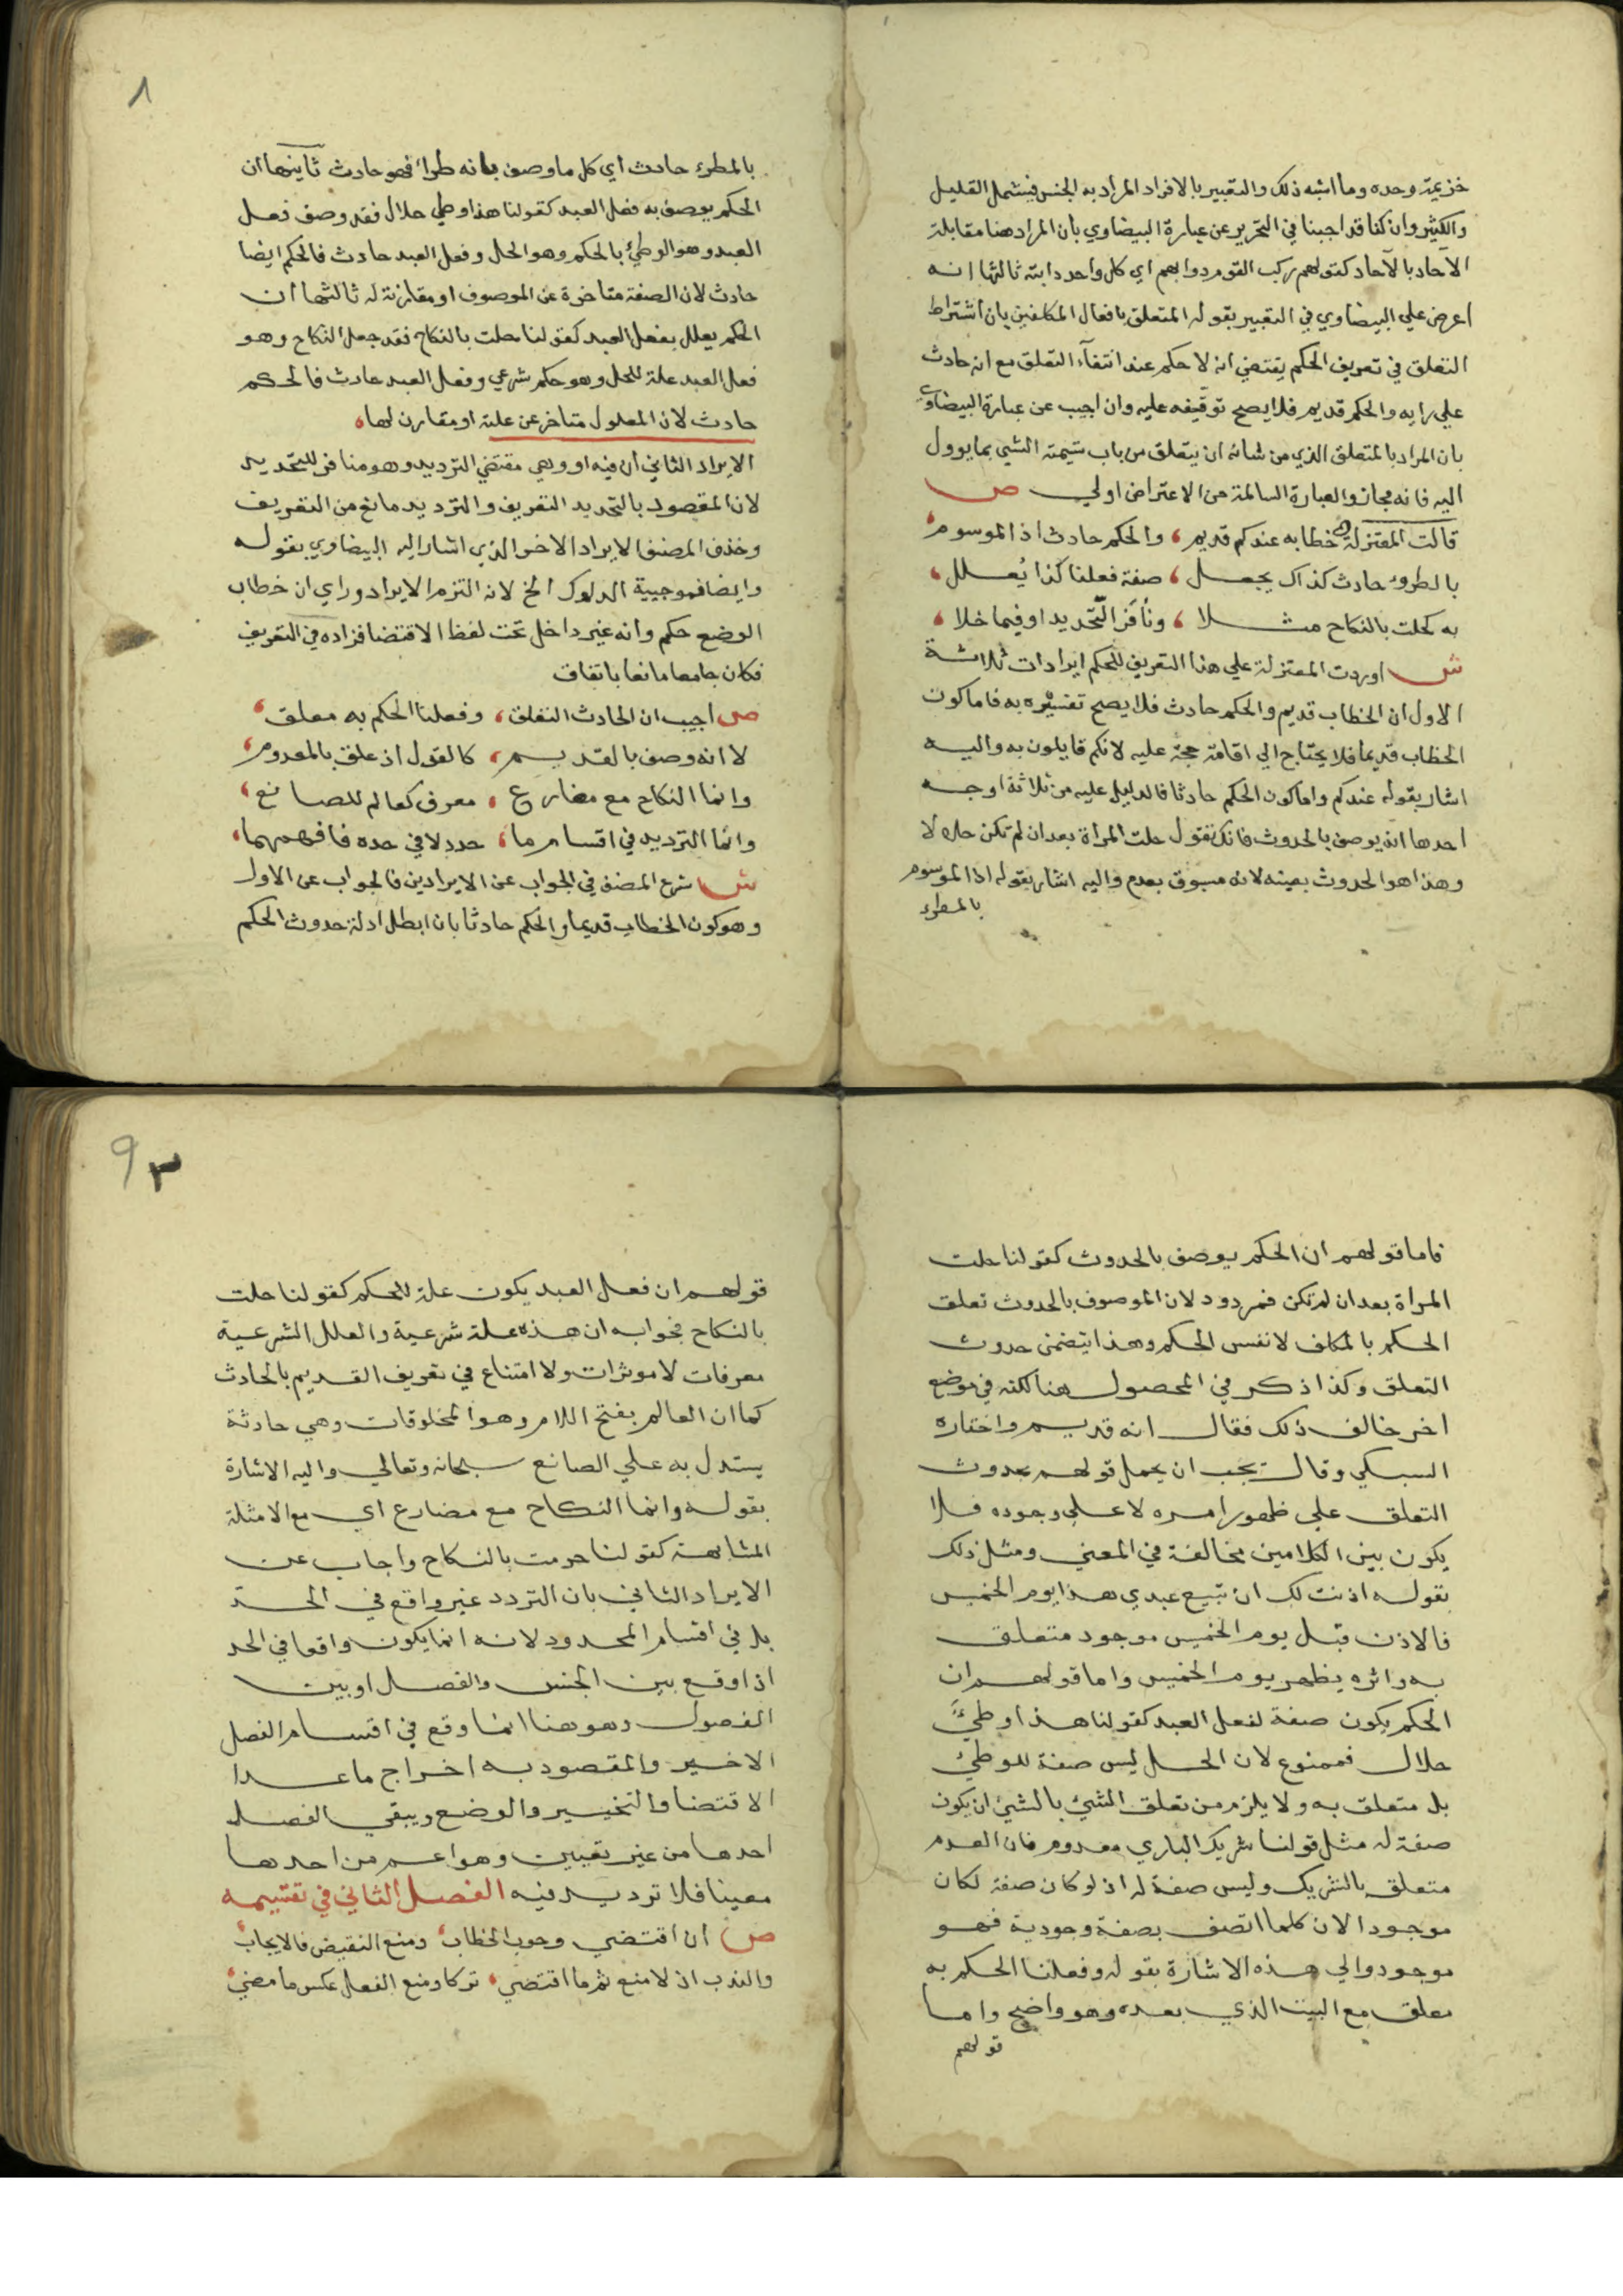 خزيمة وحده وما اشبه ذلك والتعبير بالافراد المراد به الجنس فيشمل القليل
والكثير وان كنا قد اجبنا في التحرير عن عبارة البيضاوي بان المراد هنا مقابلة
الآحاد بالآحاد كقولهم ركب القوم دوابهم اي كل واحد دابته ثالثها انه
اعرض علي البيضاوي في التعبير بقوله المتعلق بافعال المكلفين بان اشتراط
التعلق في تعريف الحكم يقتضي انه لا حكم عند انتفآء التعلق مع انه حادث
علي رايه والحكم قديم فلا يصح توقيفه عليه وان اجيب عن عبارة البيضاوي
بان المراد بالمتعلق الذي من شانه ان يتعلق من باب تسمية الشي بما يوول
اليه فانه مجاز والعبارة السالمة من الاعتراض اولي ص
قالت المعتزلة خطابه عندكم قديم، والحكم حادث اذ الموسوم،
بالطروء حادث كذاك يجعل، صفة فعلنا كذا يُعلل،
به كحلت بالنكاح مثلا، ونُافَر التّحديد او فيما خلا،
ش اوردت المعتزلة علي هذا التعريف للحكم ايرادات ثلاثة
الاول ان الخطاب قديم والحكم حادث فلا يصح تفسيره به فاما كون
الخطاب قديما فلا يحتاج الي اقامة حجة عليه لانكم قايلون به واليه
اشار بقوله عندكم واما كون الحكم حادثا فالدليل عليه من ثلاثة اوجه
احدها انه يوصف بالحدوث فانك تقول حلت المراة بعد ان لم تكن حلالا
وهذا هو الحدوث بعينه لانه مسبوق بعدم واليه اشار بقوله اذا الموسوم
بالمطرء
٨
بالمطرء حادث اي كل ما وصف بانه طرا فهو حادث ثانيها ان
الحكم يوصف به فعل العبد كقولنا هذا وطي حلال فقد وصف فعل
العبد وهو الوطئ بالحكم وهو الحل وفعل العبد حادث فالحكم ايضا
حادث لان الصفة متاخرة عن الموصوف او مقارنة له ثالثها ان
الحكم يعلل بفعل العبد كقولنا حلت بالنكاح فقد جعل النكاح وهو
فعل العبد علة للحل وهو حكم شرعي وفعل العبد حادث فالحكم
حادث لان المعلول متاخر عن علته او مقارن لها،
الايراد الثاني ان فيه او وهي مقتضي الترديد وهو مناف للتحديد
لان المقصود بالتحديد التعريف والترديد مانع من التعريف
وحذف المصنف الايراد الاخر الذي اشار اليه البيضاوي بقوله
وايضا فموجبية الدلوك الخ لانه التزم الايراد وراي ان خطاب
الوضع حكم وانه غير داخل تحت لفظ الاقتضا فزاده في التعريف
فكان جامعا مانعا باتفاق
ص اجيب ان الحادث التعلق، وفعلنا الحكم به معلق،
لا انه وصف بالقديم، كالقول اذ علق بالمعدوم،
وانما النكاح مع مضارع، معرف كعالم للصانع،
وانما الترديد في اقسام ما، حدد لا في حده فافهمهما،
ش شرع المصنف في الجواب عن الايرادين فالجواب عن الاول
وهو كون الخطاب قديما والحكم حادثا بان ابطل ادلة حدوث الحكم
فاما قولهم ان الحكم يوصف بالحدوث كقولنا حلت
المراة بعد ان لم تكن فمردود لان الموصوف بالحدوث تعلق
الحكم بالمكلف لا نفس الحكم وهذا يتضمن حدوث
التعلق وكذا ذكر في المحصول هنا لكنه في موضع
اخر خالف ذلك فقال انه قديم واختاره
السبكي وقال يجب ان يحمل قولهم بحدوث
التعلق علي ظهور امره لا علي وجوده فلا
يكون بين الكلامين مخالفة في المعني ومثل ذلك
بقوله اذنت لك ان تبيع عبدي هذا يوم الخميس
فالاذن قبل يوم الخميس موجود متعلق
به واثره يظهر يوم الخميس واما قولهم ان
الحكم يكون صفة لفعل العبد كقولنا هذا وطئ
حلال فممنوع لان الحل ليس صفة للوطئ
بل متعلق به ولا يلزم من تعلق الشئ بالشئ ان يكون
صفة له مثل قولنا شريك الباري معدوم فان العدم
متعلق بالشريك وليس صفة له اذ لو كان صفة لكان
موجودا لان كلما اتصف بصفة وجودية فهو
موجود والي هذه الاشارة بقوله وفعلنا الحكم به
معلق مع البيت الذي بعده وهو واضح واما
قولهم
9
قولهم ان فعل العبد يكون علة للحكم كقولنا حلت
بالنكاح فجوابه ان هذه علة شرعية والعلل الشرعية
معرفات لا موثرات ولا امتناع في تعريف القديم بالحادث
كما ان العالم بفتح اللام وهو المخلوقات وهي حادثة
يستدل به علي الصانع سبحانه وتعالي واليه الاشارة
بقوله وانما النكاح مع مضارع اي مع الامثلة
المشابهة كقولنا حرمت بالنكاح واجاب عن
الايراد الثاني بان التردد غير واقع في الحد
بل في اقسام المحدود لانه انما يكون واقعا في الحد
اذا وقع بين الجنس والفصل او بين
الفصول وهو هنا انما وقع في اقسام الفصل
الاخير والمقصود به اخراج ما عدا
الاقتضا والتخيير والوضع ويبقي الفصل
احدها من غير تعيين وهو اعم من احدها
معينا فلا ترديد فيه الفصل الثاني في تقسيمه
ص ان اقتضي وجوب الخطاب، ومنع النقيض فالايجاب،
والندب اذ لا منع ثم ما اقتضي، تركا ومنع الفعل عكس ما مضي،